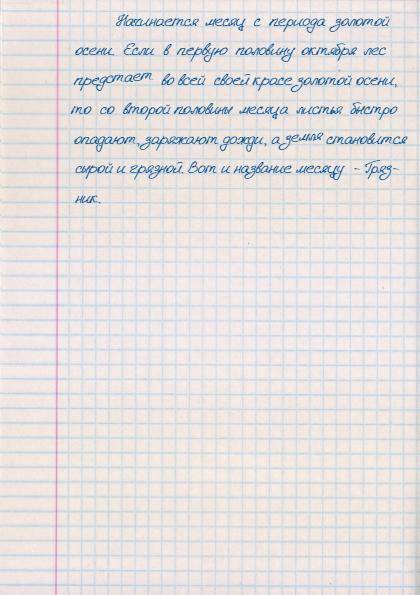 Начинается месяц с периода золотой
осени. Если в первую половину октября лес
предстает во всей своей красе золотой осени,
то со второй половины месяца листья быстро
опадают, заряжают дожди, а земля становится
сырой и грязной. Вот и название месяцу - Гряз-
ник.